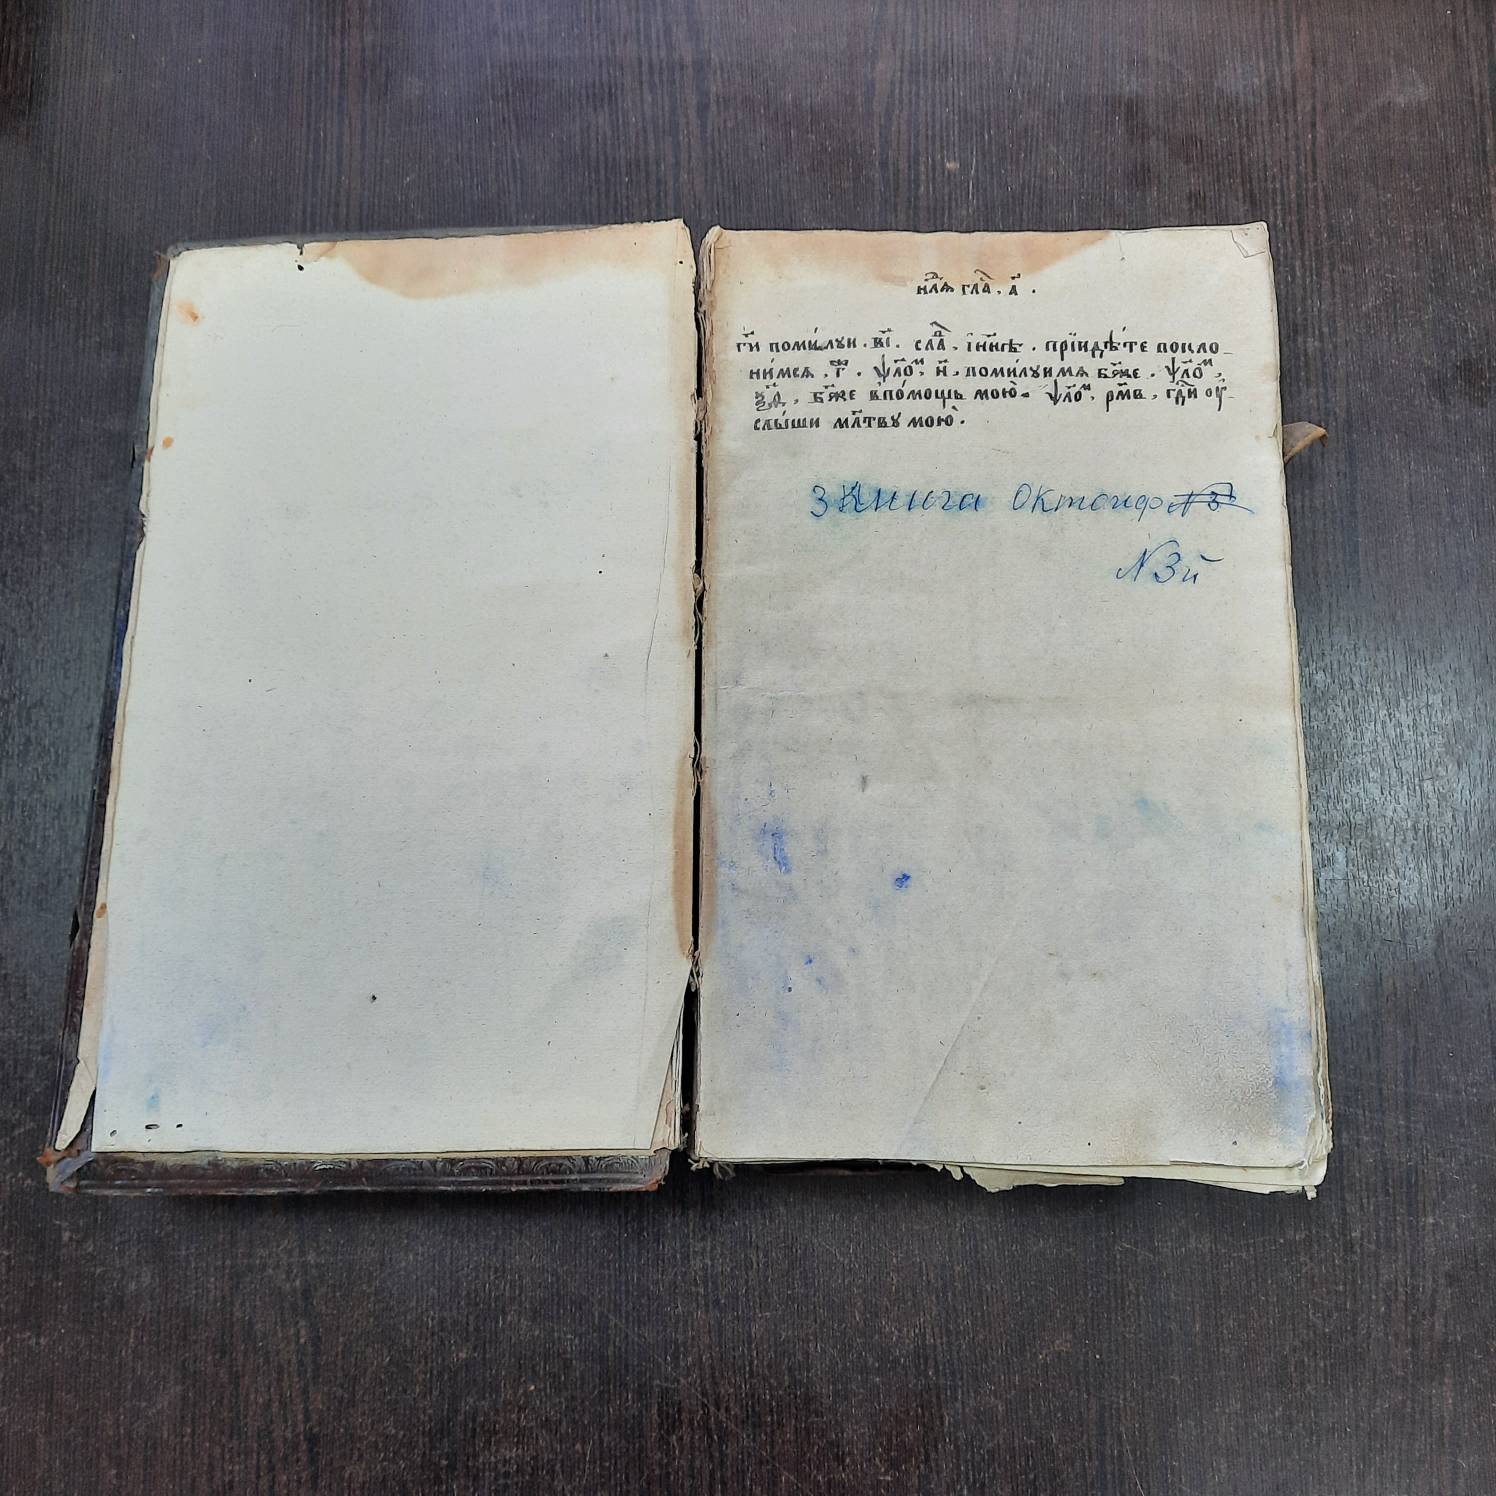 нл҃ѧ гла̑. а҃.
гⷭ҇и поми́луи. в҃і. сла̑, і҆нн҃ѣ. прїидѣ́те покло-
ни́мсѧ, г҃. ѱло̑м, н҃, поми́луимѧ бж҃е. ѱло̑м,
бж҃е в̾по́мощь мою̀. ѱло̑м, рм҃в, гдⷭ҇и оу҆-
слы́ши мл҃тву мою̀.
3 Книга Октоиф № 3
№ 3й